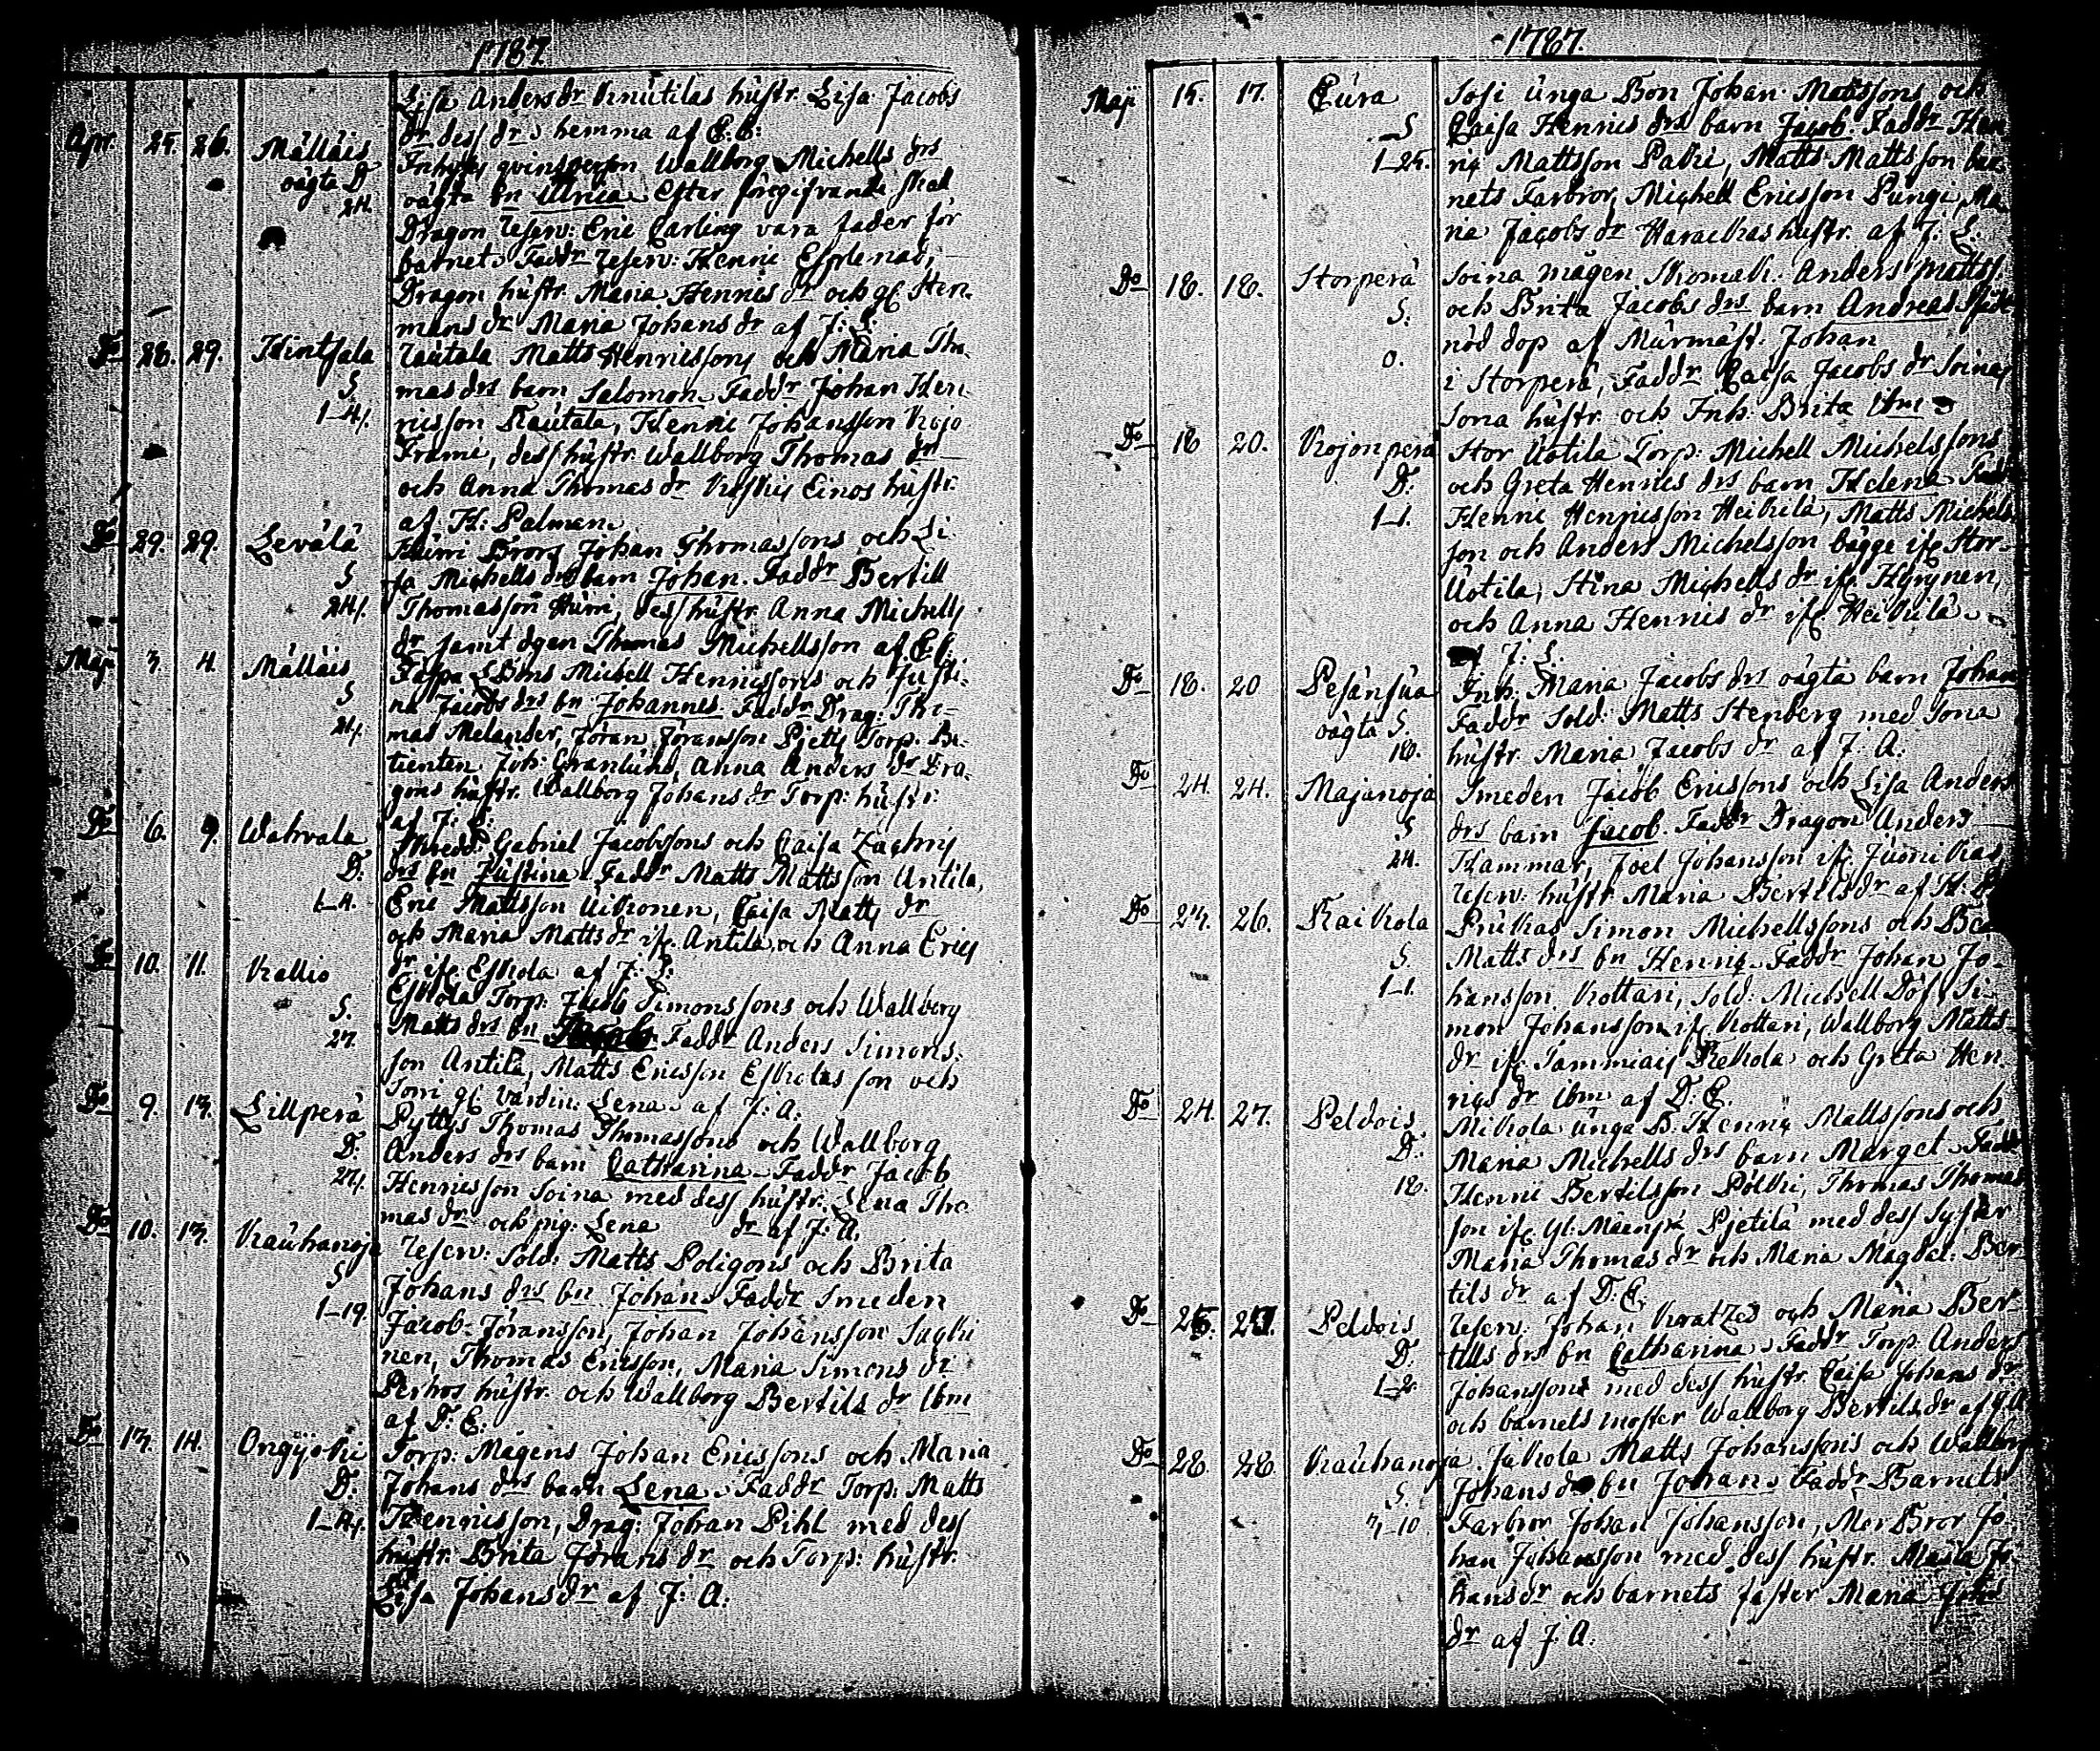 1787.
Lisa Andersdr Knutilas hustr. Lisa Jacobs
dr dess dr hemma af E. C:
Apr. 25. 26. Mälläis qvinsperson Wallborg Michells drs
oägta D oägta bn Ulrica. Efter föregifvande skal
24. Dragon Reserv: Eric Carling vara fader för
barnet. Faddr Reserv: Henric
Dragon hustr. Maria Henricsdr och gl. Hen-
mans dr Maria Johansdr af J: L:
Do 28. 29. Hintsala Rautala Matts Henricssons och Maria Tho-
S mas drs barn Salomon. Faddr Johan Hen-
1-4. ricsson Rautala, Henric Johansson Kojo
Frami, dess hustr. Wallborg Thomas dr
och Anna Thomas dr Koskis Einos hustr.
af H: Palman.
Do 29. 29. Levälä Brors Johan Thomassons och Li-
S sa Michells drs barn Johan. Faddr Bertill
24. Thomasson, dess hustr. Anna Michells
dr samt dgen Thomas Michellsson af E. C.
Maji 3. 4. Mälläis Michell Henricssons och Justi-
S na Jacobs drs bn Johannes. Faddr Drag: Tho-
24. mas Melander, Jöran Jöransson Torp.
Joh: Granlund, Anna Anders dr Dra-
gons hustr. Wallborg Johans dr Torp: hustr:
af J: L:
Do 6. 9. Wahrala Gabriel Jacobssons och Caisa Zachris
D: drs bn Justina. Faddr Matts Mattsson Antila,
1-4. Eric Mattsson Uitonen, Caisa Matts dr
och Maria Mattsdr ifr. Antila, och Anna Erics
dr ifr. Eskola af J: L:
Do 10. 11. Kallio Eskola Torp: Jacob Simonssons och Wallborg
S. Matts drs bn Faddr Anders Simons-
27. son Antila, Matts Ericsson Eskolas son och
gl värdin: Lena. af J: A.
Do 9. 13. Lillperä Pyttys Thomas Thomassons och Wallborg
D: Anders drs barn Catharina. Faddr Jacob
27. Henricsson Soina med dess hustr. Lena Tho-
mas dr och pig: Lena dr af J: A.
Do 10. 13. Kauhanoja Reserv: Sold: Matts Poligons och Brita
S Johans drs bn Johan. Faddr Smeden
1-19. Jacob Jöransson, Johan Johansson
nen, Thomas Ericsson, Maria Simons dr
hustr. och Wallborg Bertils dr ibm
af D: E:
Do 13. 14. Torp: Mågens Johan Ericssons och Maria
D: Johans drs barn Lena. Faddr Torp: Matts
1-4. Henricsson, Drag: Johan Pihl med dess
hustr. Brita Jörans dr och Torp: hustr.
Lisa Johansdr af J: A.
1787.
Maji 15. 17. Eura Sosi unga Bon Johan Mattssons och
S Caisa Henrics drs barn Jacob. Faddr Hen-
1-25. ric Mattsson, Matts Mattsson bar-
nets Farbror, Michell Ericsson Pungi, Ma-
ria Jacobs dr hustr. af J. L.
Do 18. 18. Storperä Soina mågen Skomak: Anders Matts.
S. och Brita Jacobs drs barn Andreas
0. nöd dop af Murmäst. Johan
i Storperä, Faddr Caisa Jacobs dr Soinas
Sona hustr. och Inh. Brita ibm
Do 18 20. Kojonperä Stor Uotila Torp: Michell Michelssons
D: och Greta Henrics drs barn Helena Fadd
1-1. Henric Henricsson Heikila, Matts Michels
son och Anders Michelsson bägge ifr Stor-
Uotila, Stina Michells dr ifr. Hyrynen,
och Anna Henrics dr ifr. Heikila
af J: L.
Do 18. 20 Pesänsua Inh. Maria Jacobs drs oägta barn Johan
oägta S. Faddr Sold: Matts Stenberg med Sona
18. hustr. Maria Jacobs dr af J: A.
Do 24. 24. Majanoja Smeden Jacob Ericssons och Lisa Anders
S drs barn Jacob. Faddr Dragon Anders
24. Hammar, Joel Johansson ifr.
Reserv: hustr. Maria Bertilsdr af H.
Do 23. 26. Raikola Simon Michellssons och
S. Matts drs bn Henric. Faddr Johan Jo-
1-1. hansson Kottari, Sold: Michell Döf, Si-
mon Johansson ifr Kottari, Wallborg Matts-
dr ifr. Rekola och Greta Hen-
rics dr ibm af D: E.
Do 24. 27. Peldois Mikola unga B. Henric Mattssons och
D. Maria Michells drs barn Marget. Fadd
18. Henric Bertilsson, Thomas Thomas
son ifr gl: Pjetilä med dess Syster
Maria Thomas dr och Maria Magdal: Ber
tils dr af D: E.
Do 25. 27. Peldois Reserv: Johan och Maria Ber-
D: tills drs bn Catharina. Faddr Torp: Anders
1-2. Johanssons med dess hustr. Caisa Johans dr
och barnets moster Wallborg Bertils dr af J. A
Do 28. 28. Kauhanoja. Jakola Matts Johanssons och Wallborg
S. Johans d bn Johan. Faddr Barnets
3-10 Farbror Johan Johansson, Mor Bror Jo-
han Johansson med dess hustr. Maria Jo-
hansdr och barnets faster Maria Joh
dr af J. A.